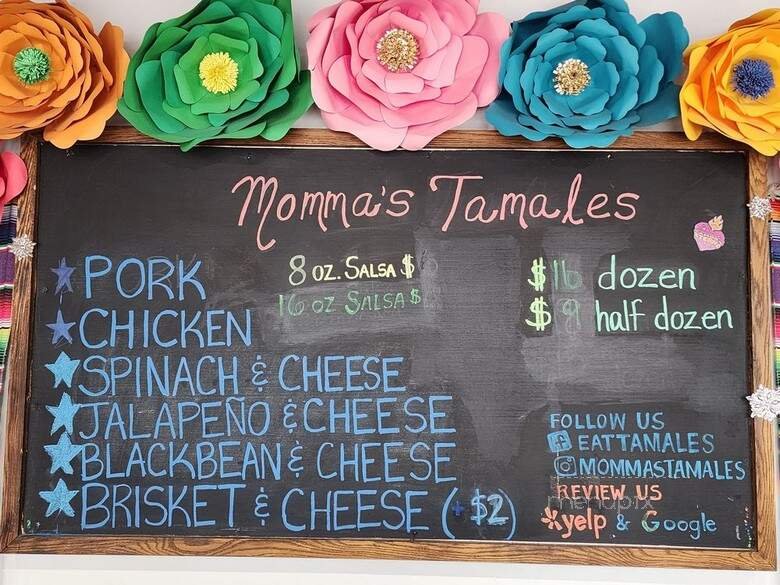 Momma's Tamales
★ PORK
★ CHICKEN
★ SPINACH & CHEESE
★ JALAPEÑO & CHEESE
★ BLACKBEAN & CHEESE
★ BRISKET & CHEESE (+$2)
8 oz. SALSA $
16 oz SALSA $
$16 dozen
$9 half dozen
FOLLOW US
EATTAMALES
MOMMASTAMALES
REVIEW US
yelp & Google
menupix